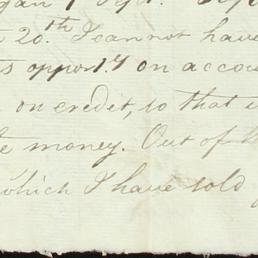 20.th I cannot have
opport.y on accou
on credit, so that
money. Out of
which I have sold